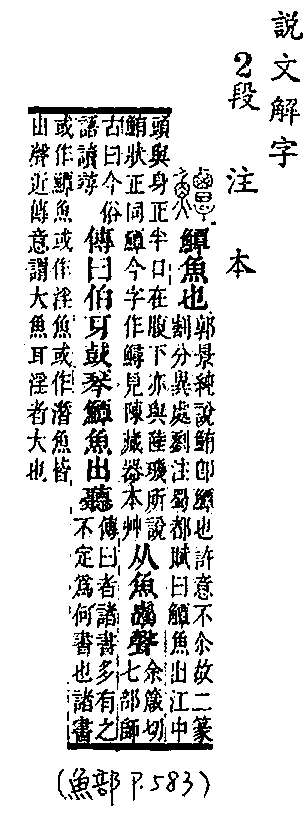 説文解字
2段注本
鱏魚也
郭景純說鮪卽鱣也許意不尒故二篆
割分異處劉注蜀都賦曰鱏魚出江中
頭與身正半口在腹下亦與陸璣所說
鮪狀正同鱏今字作鱘見陳藏器本艸
从魚覃聲
余箴切
七部師
古曰今俗
語讀尋
傳曰伯牙鼓琴鱏魚出聽
傳曰者諸書多有之
不定爲何書也諸書
或作鱏魚或作淫魚或作潛魚皆
出聲近傅意謂大魚耳淫者大也
(魚部 P.583)